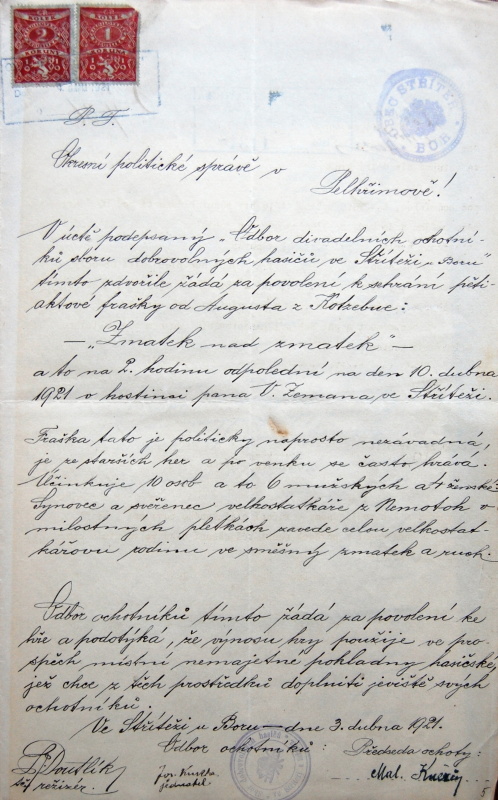 KOLEK KOLEK
2 1
KORUNY KORUNA
1919 1919
OBEC STŘÍTEŽ
BOR
P. T.
Okresní politické správě v
Pelhřimově!
V úctě podepsaný „Odbor divadelních ochotní-
ků sboru dobrovolných hasičů ve Střítěži u Boru"
tímto zdvořile žádá za povolení k sehrání pěti-
aktové frašky od Augusta z Kotzebue:
— „Zmatek nad zmatek" —
a to na 2. hodinu odpolední na den 10. dubna
1921 v hostinci pana V. Zemana ve Střítěži.
Fraška tato je politicky naprosto nezávadná,
je ze starších her a po venku se často hrává.
Účinkuje 10 osob a to 6 mužských a 4 ženské.
Synovec a svěřenec velkostatkáře z Nemotoh v
milostných pletkách zavede celou velkostat-
kářovu rodinu ve směšný zmatek a ruch.
Odbor ochotníků tímto žádá za povolení ke
hře a podotýká, že výnosu hry použije ve pro-
spěch místní nemajetné pokladny hasičské,
jež chce z těch prostředků doplniti jeviště svých
ochotníků.
Ve Střítěži u Boru — dne 3. dubna 1921.
Odbor ochotníků: Předseda ochoty:
Doutlík
režizér. jednatel Mat.
5